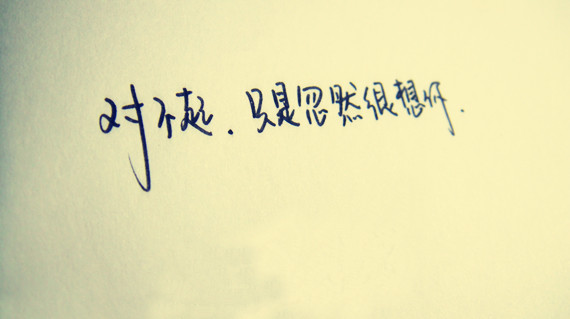 对不起.只是忽然很想你.